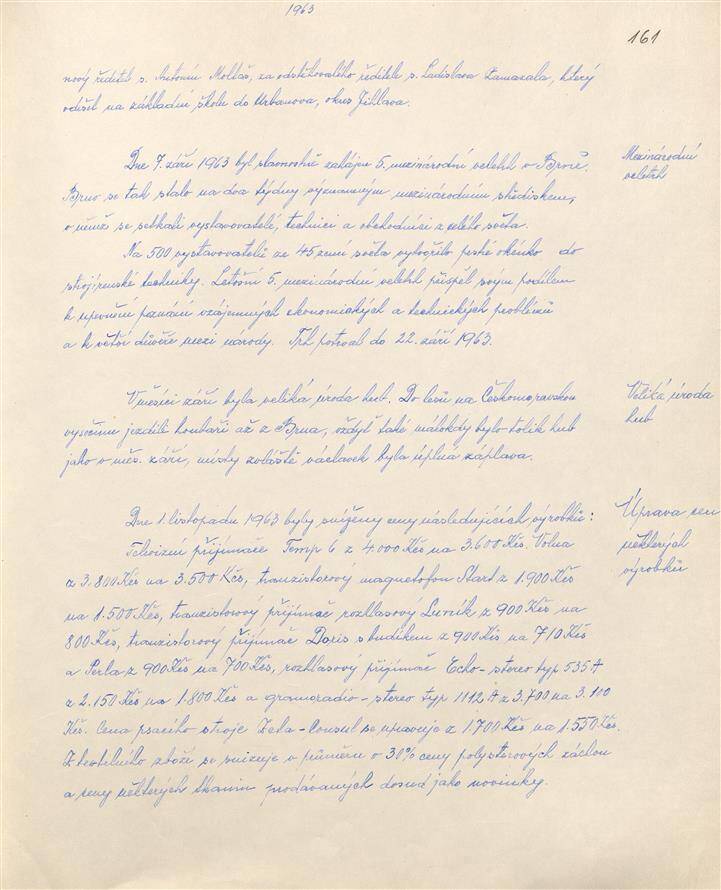 1963
161
nový ředitel s. Antonín Mollaš, za odstěhovalého ředitele s. Ladislava Zamazala, který
odešel na základní školu do Urbanova, okres Jihlava.
Dne 7. září 1963 byl slavnostně zahájen 5. mezinárodní veletrh v Brně.
Mezinárodní
veletrh
Brno se tak stalo na dva týdny významným mezinárodním střediskem,
v němž se setkali vystavovatelé, technici a obchodníci z celého světa.
Na 500 vystavovatelů ze 45 zemí světa vytvořilo pestré okénko do
strojírenské techniky. Letošní 5. mezinárodní veletrh přispěl svým podílem
k upevnění poznání vzájemných ekonomických a technických problémů
a k větší důvěře mezi národy. Trh potrval do 22. září 1963.
V měsíci září byla veliká úroda hub. Do lesů na Českomoravskou
Veliká úroda
hub
vysočinu jezdili houbaři až z Brna, vždyť také málokdy bylo tolik hub
jako v měs. září, místy zvláště václavek byla úplná záplava.
Dne 1. listopadu 1963 byly sníženy ceny následujících výrobků:
Úprava cen
některých
výrobků
Televizní přijímače Temp 6 z 4.000 Kčs na 3.600 Kčs. Volna
z 3.800 Kčs na 3.500 Kčs, tranzistorový magnetofon Start z 1.900 Kčs
na 1.500 Kčs, tranzistorový přijímač rozhlasový Luník z 900 Kčs na
800 Kčs, tranzistorový přijímač Doris s budíkem z 900 Kčs na 710 Kčs
a Perla z 900 Kčs na 700 Kčs, rozhlasový přijímač Echo-stereo typ 535 A
z 2.150 Kčs na 1.800 Kčs a gramoradio-stereo typ 1112 A z 3.700 na 3.100
Kčs. Cena psacího stroje Zeta-Consul se upravuje z 1.700 Kčs na 1.550 Kčs.
Z textilního zboží se snižuje v průměru o 30% ceny polyesterových záclon
a ceny některých tkanin prodávaných dosud jako novinky.